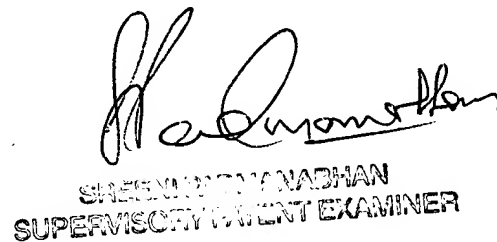 SREENI PADMANABHAN
SUPERVISORY PATENT EXAMINER